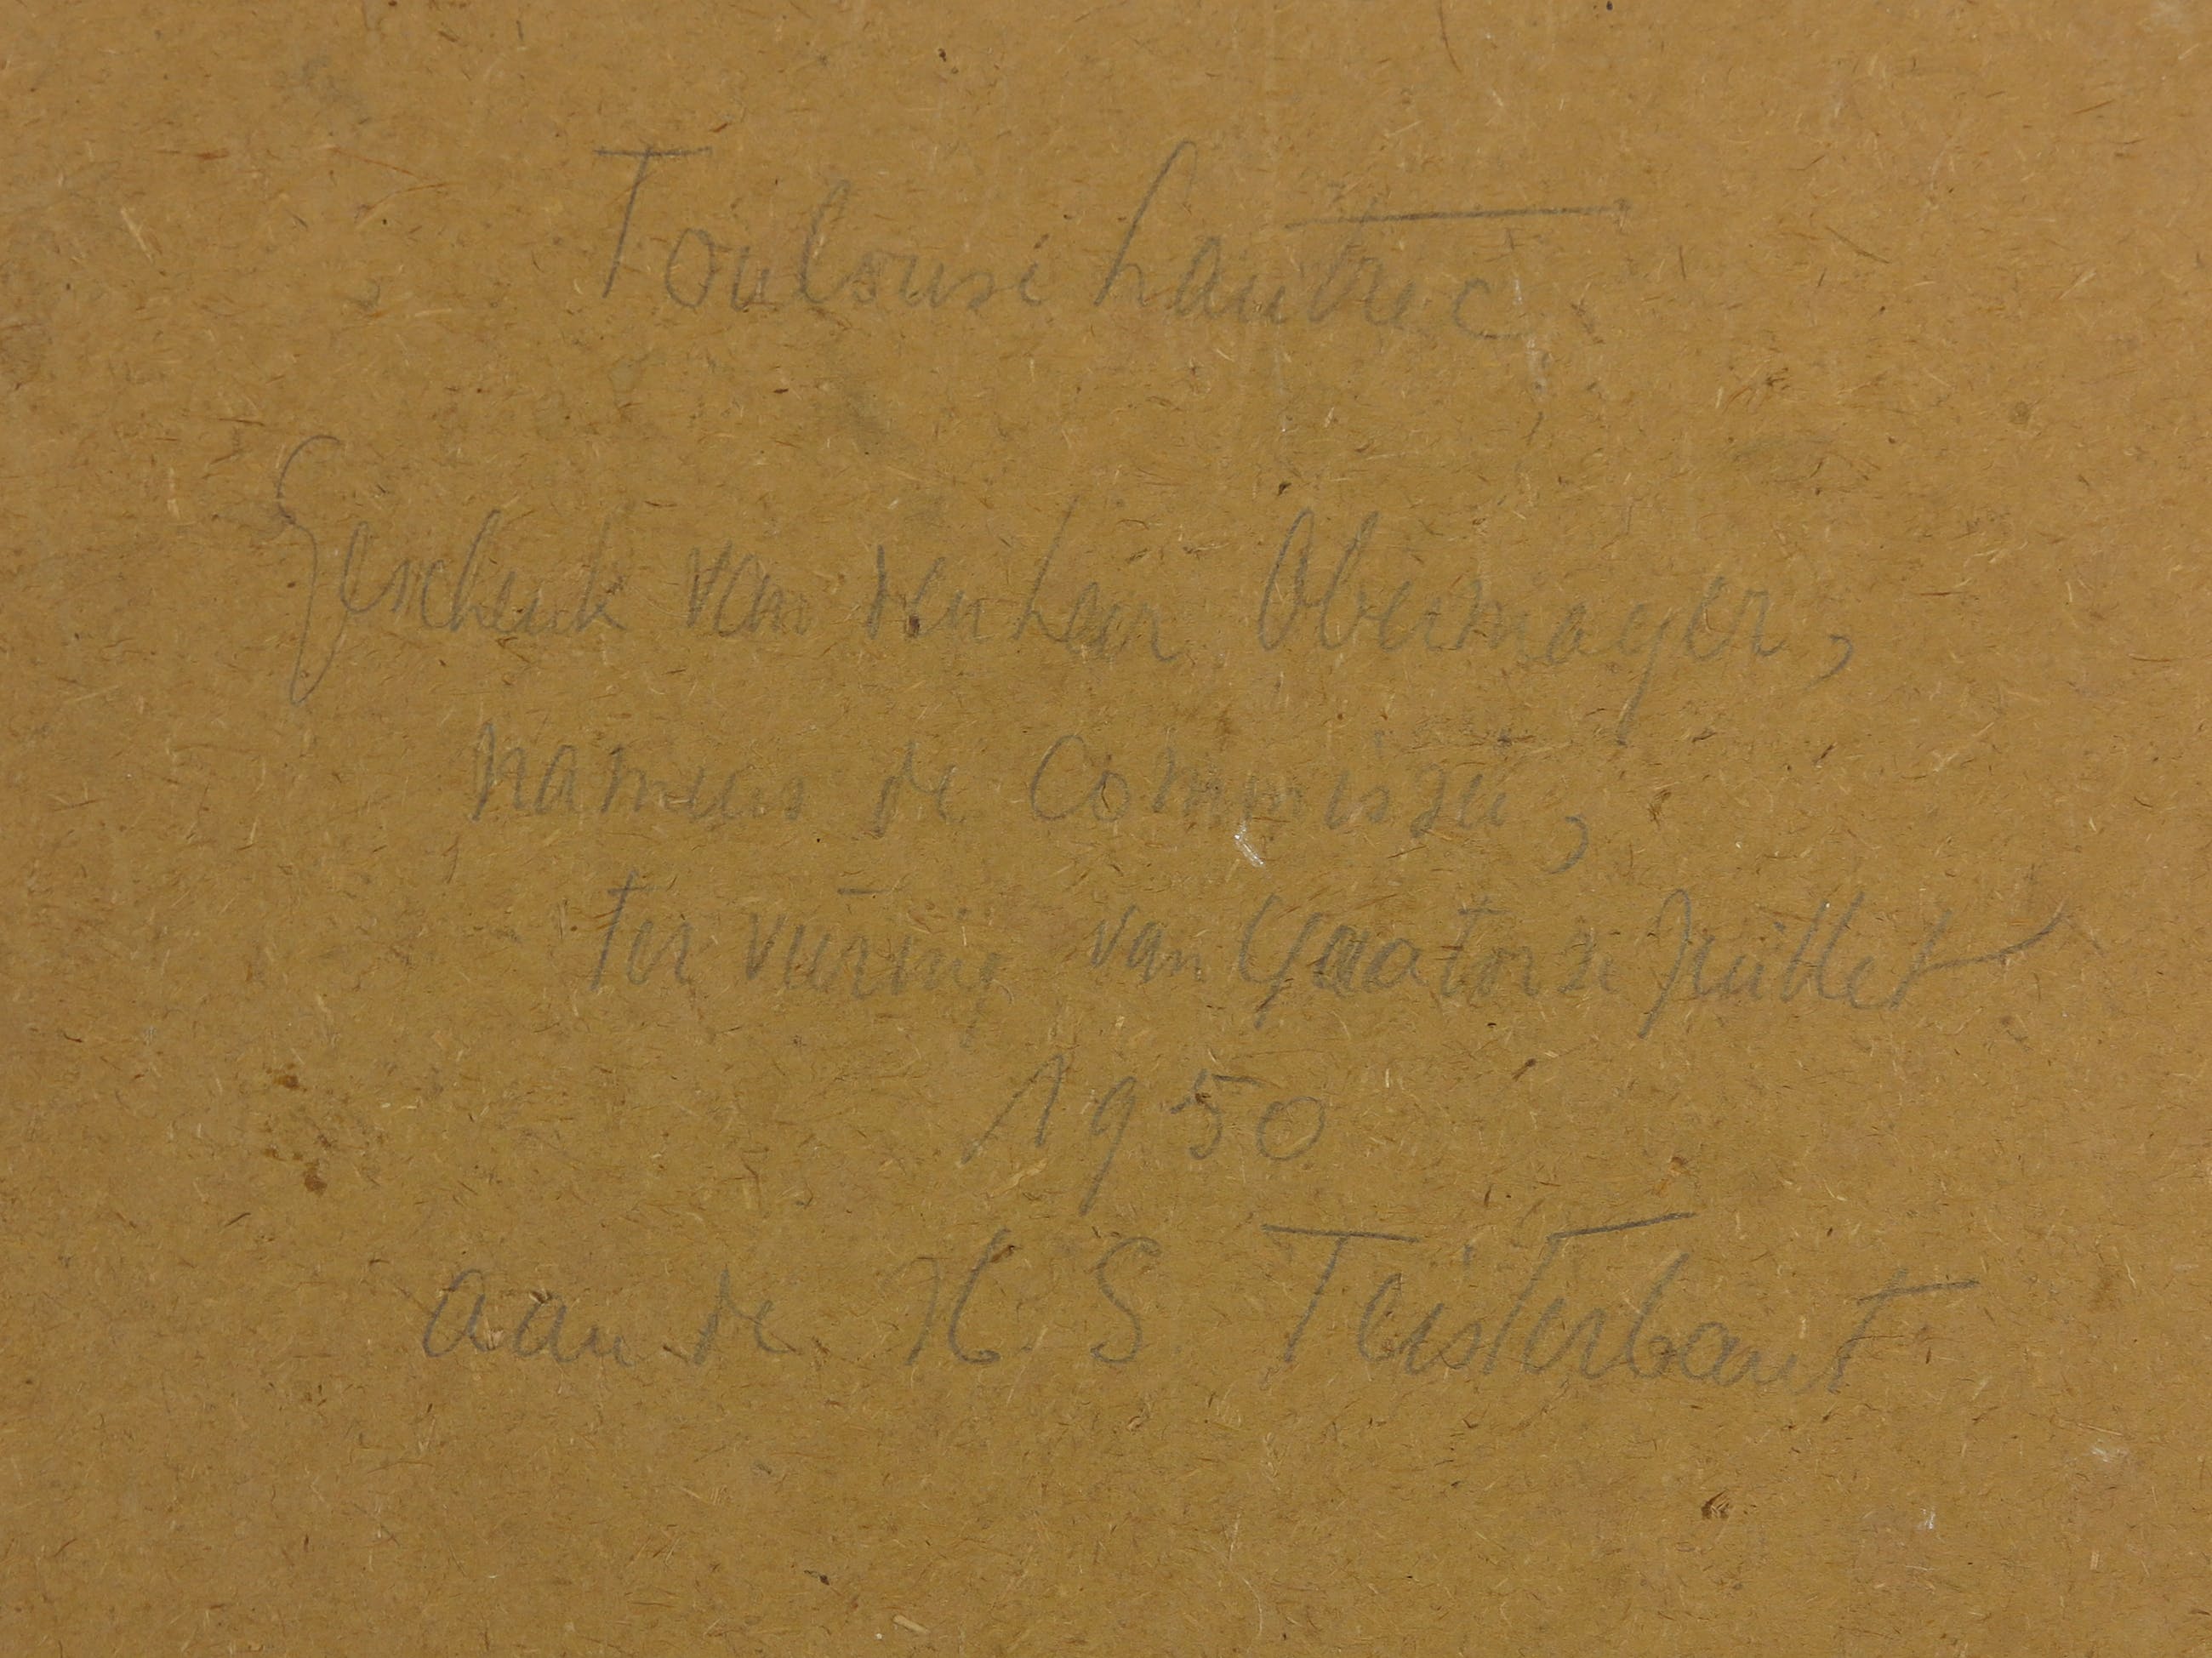 Toulouse Lautrec
Geschenk van den heer Obermayer,
namens de Commissie,
ter viering van Quatorze Juillet
1950
aan de H S Teisterbant